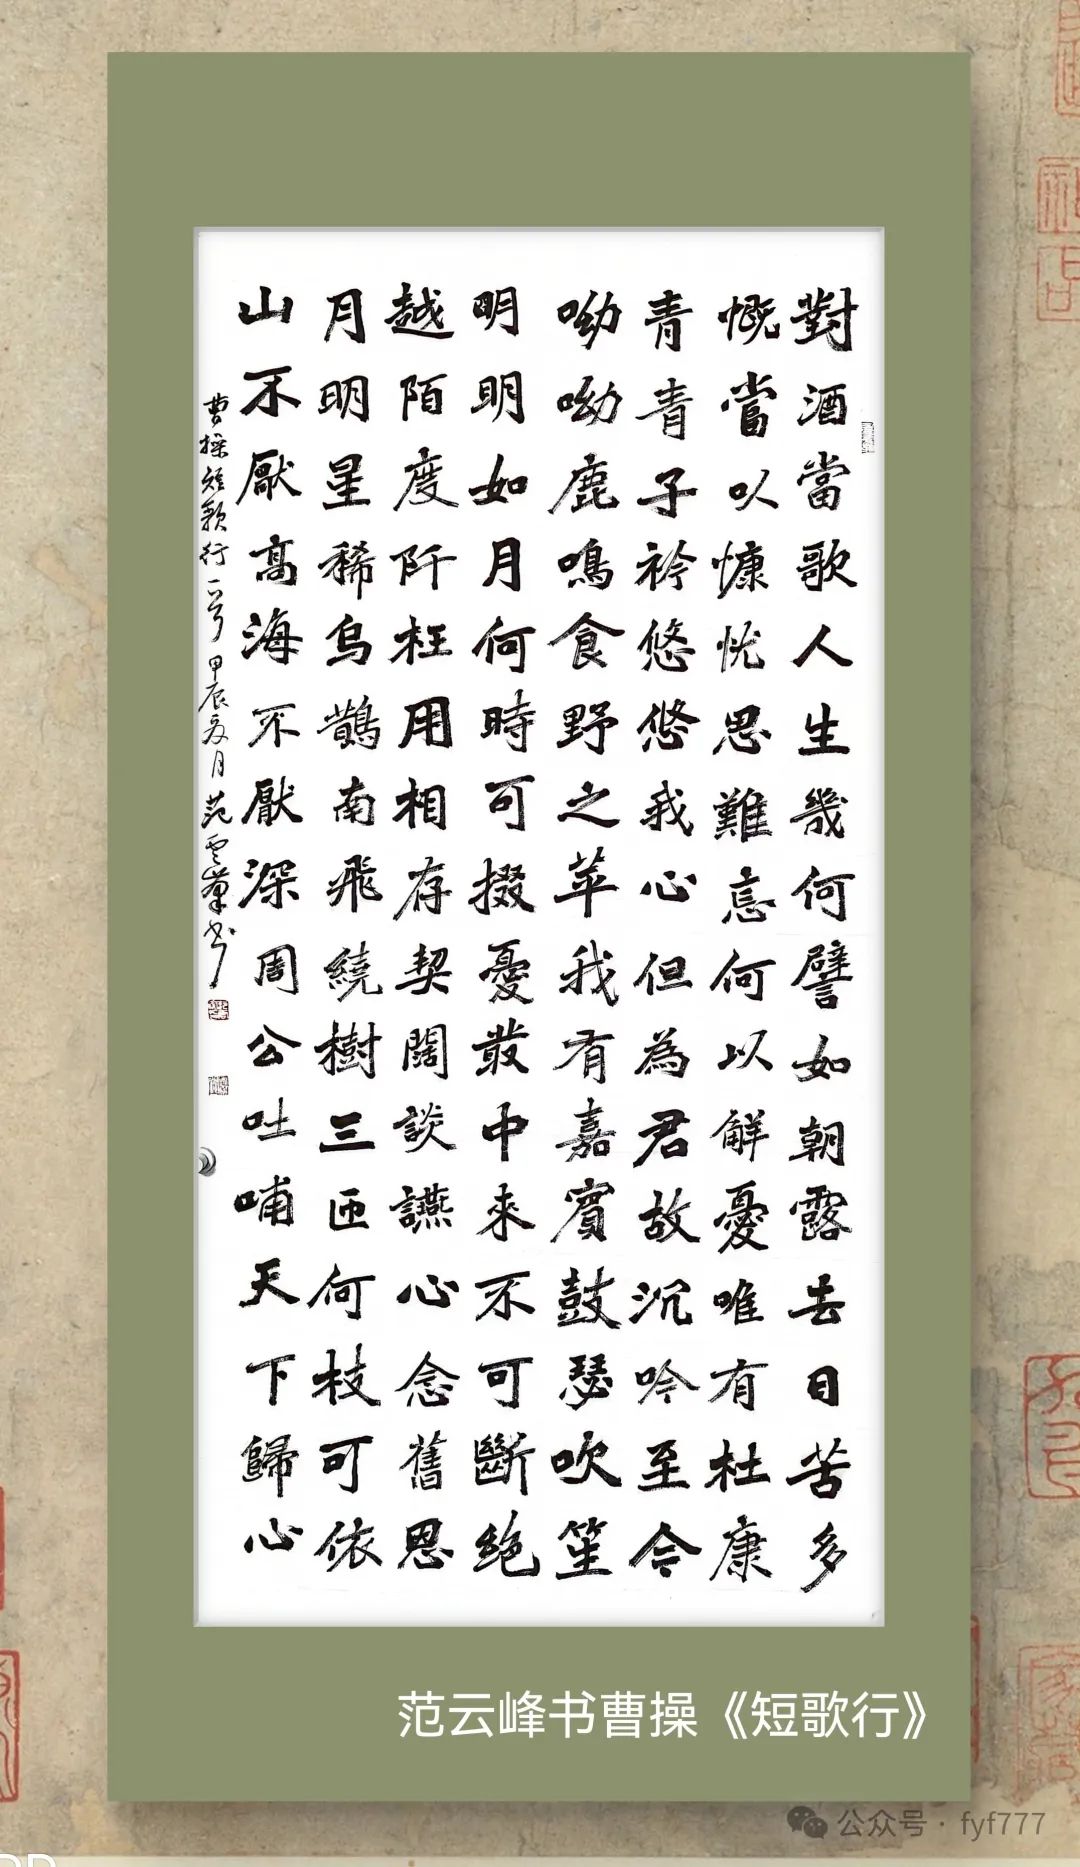 對酒當歌人生幾何譬如朝露去日苦多
慨當以慷忧思難忘何以解憂唯有杜康
青青子衿悠悠我心但為君故沉吟至今
呦呦鹿鳴食野之苹我有嘉賓鼓瑟吹笙
明明如月何時可掇憂叢中來不可斷絶
越陌度阡枉用相存契闊談讌心念舊恩
月明星稀烏鵲南飛繞樹三匝何枝可依
山不厭高海不厭深周公吐哺天下歸心
曹操短歌行一首甲辰夏月范雲峯书
范云峰书曹操《短歌行》
公众号·fyf777